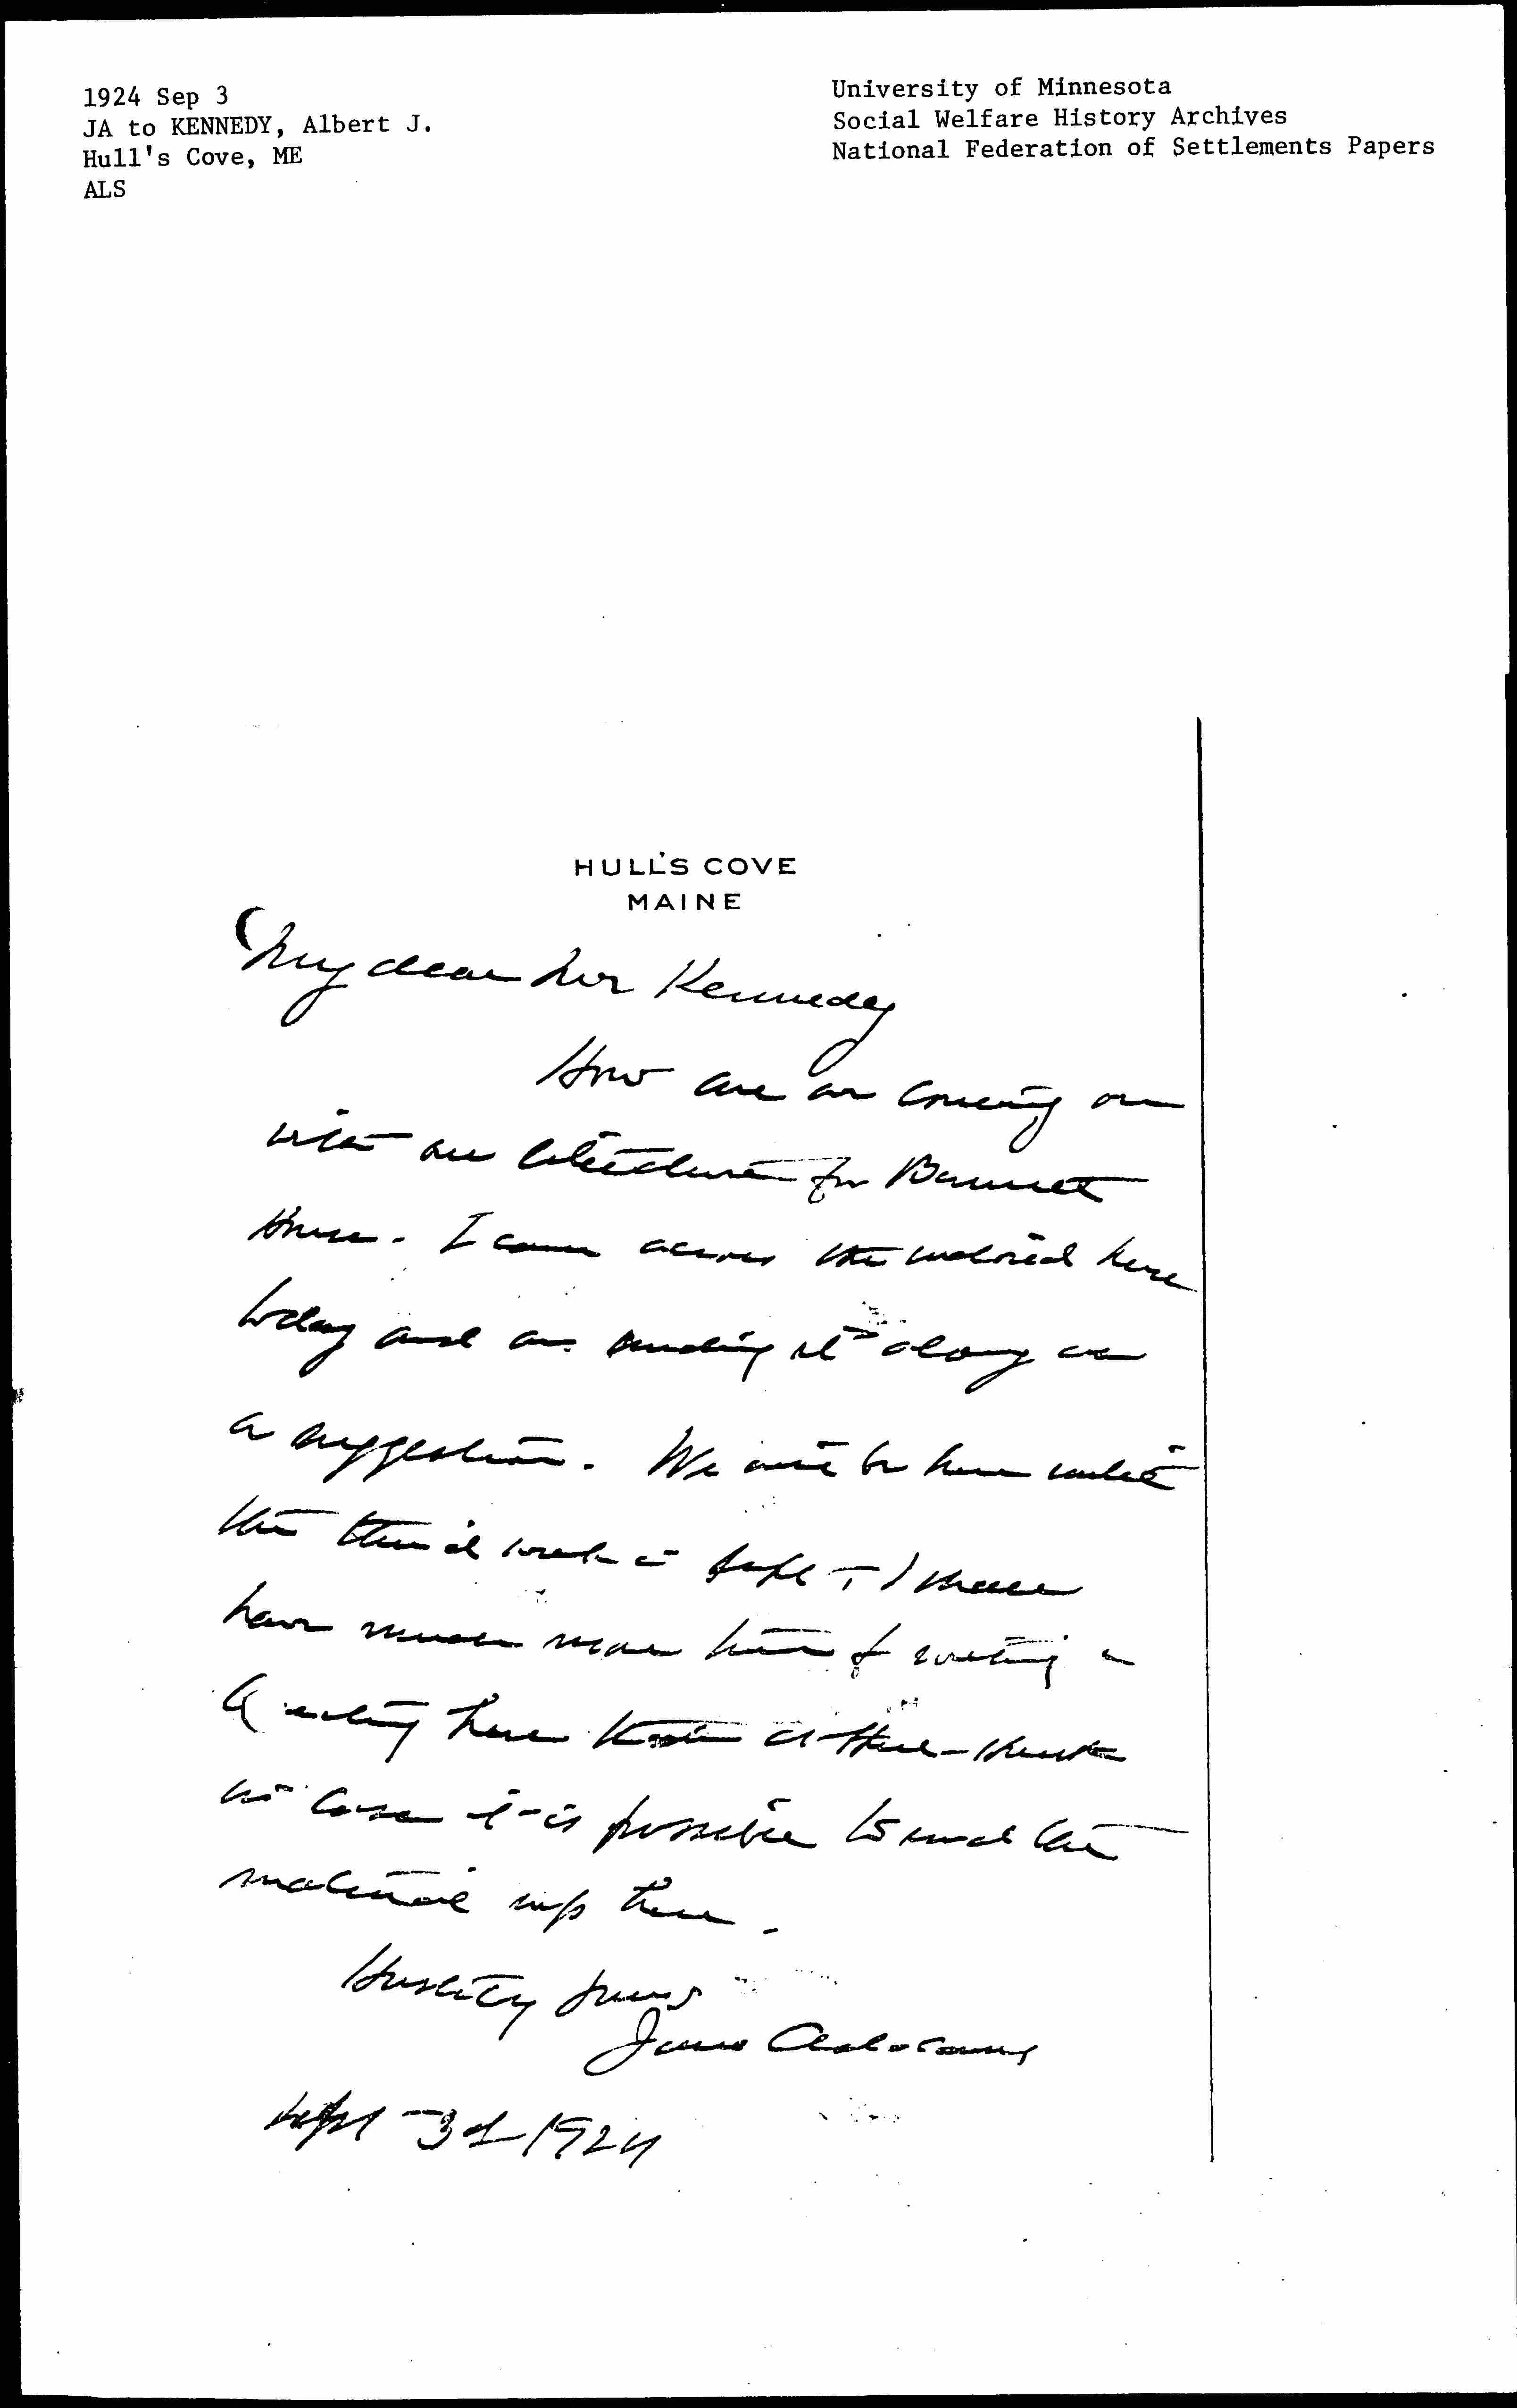 1924 Sep 3
JA to KENNEDY, Albert J.
Hull's Cove, ME
ALS
University of Minnesota
Social Welfare History Archives
National Federation of Settlements Papers
HULL'S COVE
MAINE
My dear Mr Kennedy
How are we coming on
with our literature for Barnett
House. I came across the enclosed here
today and am sending it along as
a suggestion. We will be here until
the third week in Sept & I shall
have much more time for writing
here than at Hull-House
in case it is possible to send the
material up here.
Hastily yours
Jane Addams
Sept 3d 1924